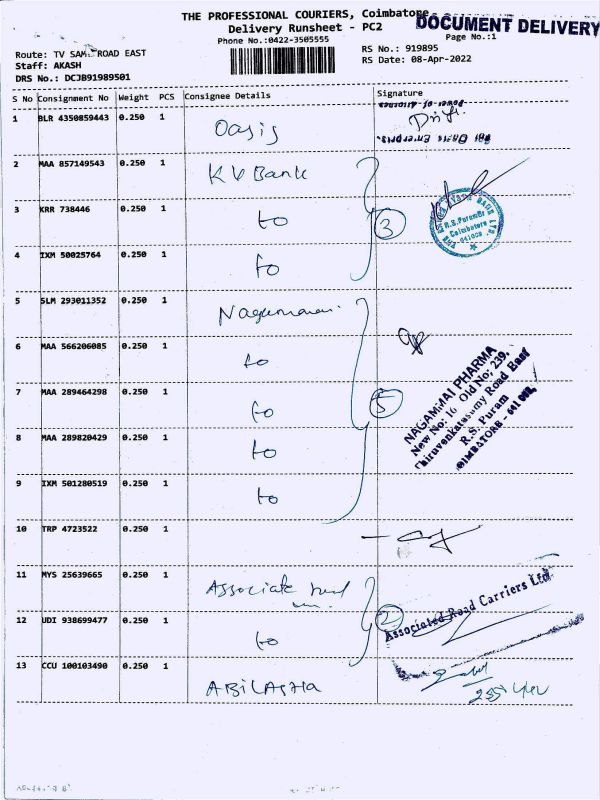 THE PROFESSIONAL COURIERS, Coimbatore
DOCUMENT DELIVERY
Delivery Runsheet - PC2
Page No.:1
Phone No.:0422-3505555
Route: TV SAMI ROAD EAST
RS No.: 919895
Staff: AKASH
RS Date: 08-Apr-2022
DRS No.: DCJB91989501
S No Consignment No Weight PCS Consignee Details Signature
1 BLR 4350859443 0.250 1 Oasis
2 MAA 857149543 0.250 1 KV Bank
3 KRR 738446 0.250 1 to 3
R.S.Puram Br
Coimbatore
641002
4 IXM 50025764 0.250 1 to
5 SLM 293011352 0.250 1
6 MAA 566206085 0.250 1 to
7 MAA 289464298 0.250 1 to 5
NAGAMMAI PHARMA
New No: 16 Old No: 239,
Thiruvenkatasamy Road East
R.S. Puram
COIMBATORE - 641 002.
8 MAA 289820429 0.250 1 to
9 IXM 501280519 0.250 1 to
10 TRP 4723522 0.250 1
11 MYS 25639665 0.250 1 Associate
12 UDI 938699477 0.250 1 to 2
Associated Road Carriers Ltd.
13 CCU 100103490 0.250 1 ABILASHA